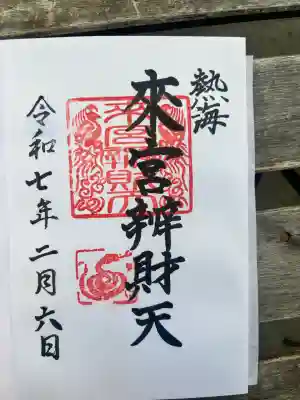 熱海
來宮辨財天
令和七年二月六日